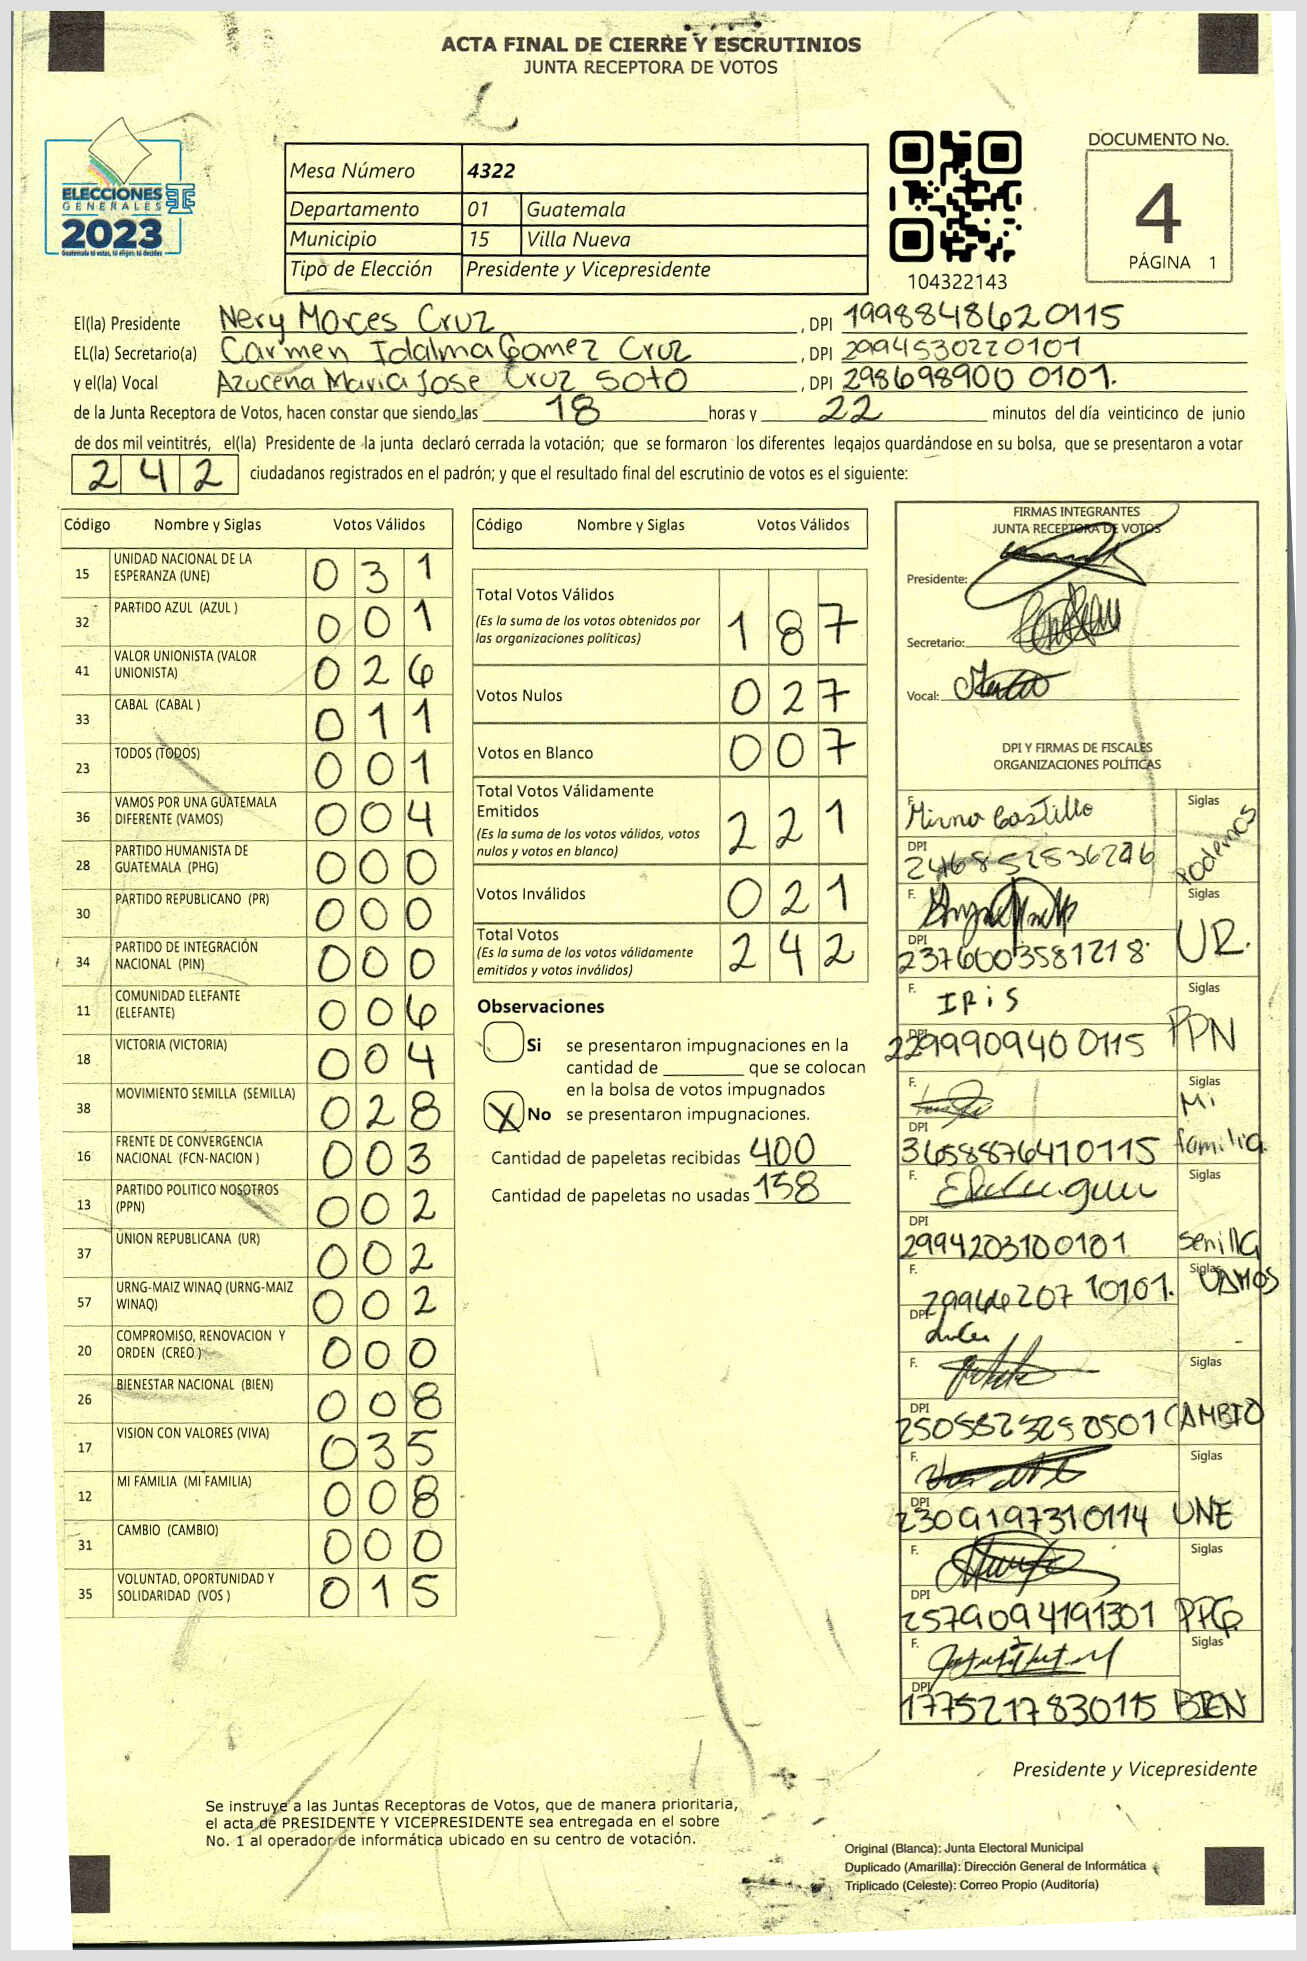 ACTA FINAL DE CIERRE Y ESCRUTINIOS
JUNTA RECEPTORA DE VOTOS
ELECCIONES
GENERALES
2023
Guatemala tú votas, tú eliges, tú decides
Mesa Número 4322
Departamento 01 Guatemala
Municipio 15 Villa Nueva
Tipo de Elección Presidente y Vicepresidente
104322143
DOCUMENTO No.
4
PÁGINA 1
El(la) Presidente Nery Morces Cruz, DPI 1998848620115
EL(la) Secretario(a) Carmen Idalma Gomez Cruz, DPI 2994530220101
y el(la) Vocal Azucena Maria Jose Cruz Soto, DPI 298698900 0101.
de la Junta Receptora de Votos, hacen constar que siendo las 18 horas y 22 minutos del día veinticinco de junio
de dos mil veintitrés, el(la) Presidente de la junta declaró cerrada la votación; que se formaron los diferentes legajos quardándose en su bolsa, que se presentaron a votar
242 ciudadanos registrados en el padrón; y que el resultado final del escrutinio de votos es el siguiente:
Código Nombre y Siglas Votos Válidos
15 UNIDAD NACIONAL DE LA ESPERANZA (UNE) 031
32 PARTIDO AZUL (AZUL ) 001
41 VALOR UNIONISTA (VALOR UNIONISTA) 026
33 CABAL (CABAL ) 011
23 TODOS (TODOS) 001
36 VAMOS POR UNA GUATEMALA DIFERENTE (VAMOS) 004
28 PARTIDO HUMANISTA DE GUATEMALA (PHG) 000
30 PARTIDO REPUBLICANO (PR) 000
34 PARTIDO DE INTEGRACIÓN NACIONAL (PIN) 000
11 COMUNIDAD ELEFANTE (ELEFANTE) 006
18 VICTORIA (VICTORIA) 004
38 MOVIMIENTO SEMILLA (SEMILLA) 028
16 FRENTE DE CONVERGENCIA NACIONAL (FCN-NACION ) 003
13 PARTIDO POLITICO NOSOTROS (PPN) 002
37 UNION REPUBLICANA (UR) 002
57 URNG-MAIZ WINAQ (URNG-MAIZ WINAQ) 002
20 COMPROMISO, RENOVACION Y ORDEN (CREO ) 000
26 BIENESTAR NACIONAL (BIEN) 008
17 VISION CON VALORES (VIVA) 035
12 MI FAMILIA (MI FAMILIA) 008
31 CAMBIO (CAMBIO) 000
35 VOLUNTAD, OPORTUNIDAD Y SOLIDARIDAD (VOS ) 015
Código Nombre y Siglas Votos Válidos
Total Votos Válidos 187
(Es la suma de los votos obtenidos por
las organizaciones políticas)
Votos Nulos 027
Votos en Blanco 007
Total Votos Válidamente
Emitidos 221
(Es la suma de los votos válidos, votos
nulos y votos en blanco)
Votos Inválidos 021
Total Votos 242
(Es la suma de los votos válidamente
emitidos y votos inválidos)
Observaciones
Si se presentaron impugnaciones en la
cantidad de ________ que se colocan
en la bolsa de votos impugnados
X No se presentaron impugnaciones.
Cantidad de papeletas recibidas 400
Cantidad de papeletas no usadas 158
FIRMAS INTEGRANTES
JUNTA RECEPTORA DE VOTOS
Presidente:
Secretario:
Vocal:
DPI Y FIRMAS DE FISCALES
ORGANIZACIONES POLÍTICAS
F. Mirna Castillo Siglas
DPI Podemos
F. Siglas
DPI 2376003581218 UR.
F. IRIS Siglas
DPI 229990940 0115 PPN
F. Siglas
DPI 3658876410115 Mi familia.
F. Siglas
DPI 2994203100101 Semilla
F. Siglas VAMOS
DPI
F. Siglas
DPI CAMBIO
F. Siglas
DPI 2309197310114 UNE
F. Siglas
DPI 2579094191301
F. Siglas
DPI 1775217830115 BIEN
Presidente y Vicepresidente
Se instruye a las Juntas Receptoras de Votos, que de manera prioritaria,
el acta de PRESIDENTE Y VICEPRESIDENTE sea entregada en el sobre
No. 1 al operador de informática ubicado en su centro de votación.
Original (Blanca): Junta Electoral Municipal
Duplicado (Amarilla): Dirección General de Informática
Triplicado (Celeste): Correo Propio (Auditoría)